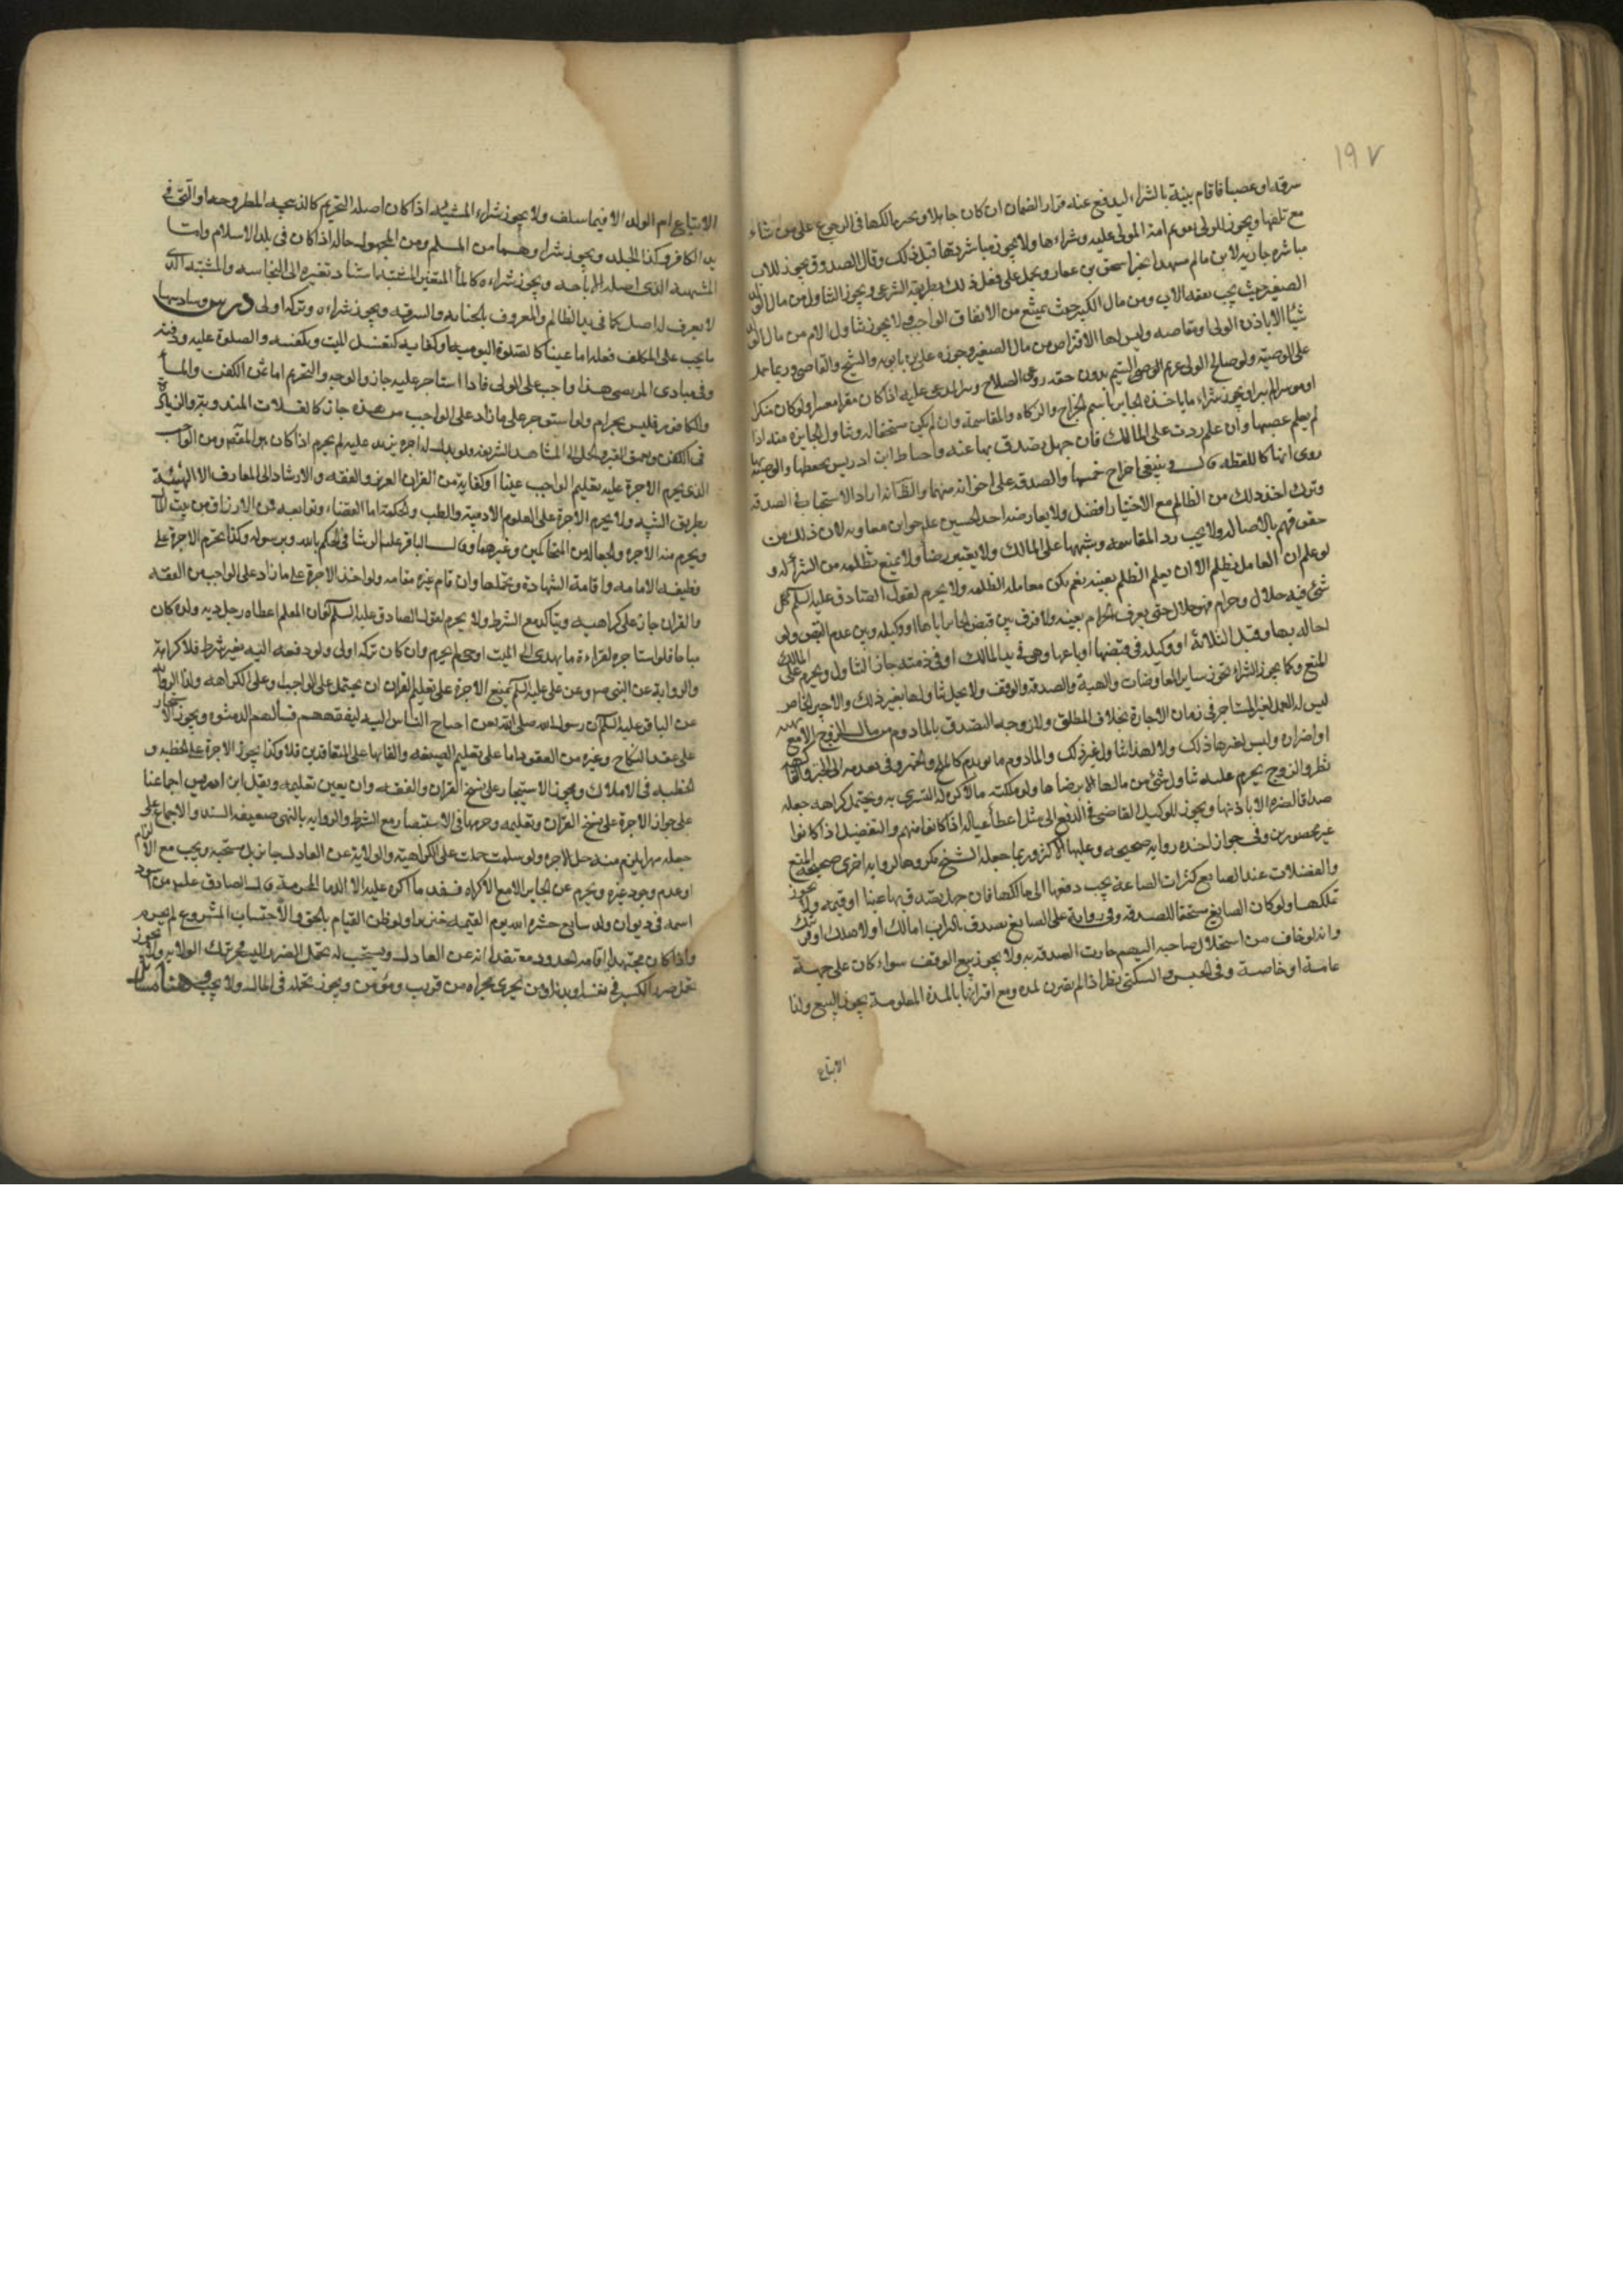 ١٩٧
سرقه او غصبا فاقام بينة بالشراء ليدفع عنه قرار الضمان ان كان جاهلا ويخير مالكها فى الرجوع على من شاء
مع تلفها ويجوز للولى تقويم امة المولى عليه وشراءها ولا يجوز مباشرتها قبل ذلك وقال الصدوق يجوز للاب
مباشرة جارية الابن ما لم يمسها لخبر اسحق بن عمار ويحمل على فعل ذلك بطريقه الشرعى ويجوز التناول من مال الولد
الصغير حيث يجب نفقه الاب ومن مال الكبير حيث يمتنع من الانفاق الواجب ولا يجوز تناول الام من مال الولد
شيئا الا باذن الولى او مقاصه وليس لها الاقتراض من مال الصغير وجوزه على بن بابويه والشيخ والقاضى وربما حمل
على الوصية ولو صالح الولى غريم اليتيم بدون حقه روعى الصلاح وبرا المدعى عليه اذا كان مقرا معسرا ولو كان منكرا
او موسرا لم يبرا ويجوز شراء ما ياخذه الجاير باسم الخراج والزكاه والمقاسمة وان لم يكن مستحقا له وتناول الجايزة منه اذا
لم يعلم غصبها وان علم ردت على المالك فان جهل تصدق بها عنه واحتاط ابن ادريس بحفظها والوصية بها
روى انها كاللقطه قال وينبغى اخراج خمسها والصدقه على اخوانه منها والظاهر انه اراد الاستحباب فى الصدقه
وترك اخذ ذلك من الظالم مع الاختيار افضل ولا يعارضه اخذ الحسين عليه جوائز معاويه لان ذلك من
حقوقهم بالاصاله ولا يجب رد المقاسمه وشبهها على المالك ولا يعتبر رضاه ولا يمنع تظلمه من الشراء له و
لو علم ان العامل يظلم الا ان يعلم الظلم بعينه نعم يكره معامله الظلمه ولا يحرم لقول الصادق عليه السلم كل
شئ فيه حلال وحرام فهو حلال حتى يعرف الحرام بعينه ولا فرق بين قبض الجاير اياها او وكيله وبين عدم القبض ولو
احاله بها وقبل الثلاثة او وكله فى قبضها او باعها وهى فى يد المالك او فى ذمته جاز التناول ويحرم على المالك
المنع وكما يجوز الشراء يجوز ساير المعاوضات والهبة والصدقه والوقف ولا يحل تناولها بغير ذلك والاجير الخاص
ليس له العمل لغير المستاجر فى زمان الاجارة بخلاف المطلق وللزوجه التصدق بالمادوم من مال الزوج الا مع نهيه
او اضراره وليس لغيرها ذلك ولا لها تناول غير ذلك والمادوم ما يؤدم كالملح واللحم وفى تعديه الى الخبز والفاكهه
نظر والزوج يحرم عليه تناول شئ من مالها الا برضاها ولو ملكته مالا كره له التسرى به ويحتمل كراهه جعله
صداقا لضره الا باذنها ويجوز للوكيل القاضى فى الدفع الى مثل اعطاء عياله اذا كانوا منهم والتفضيل اذا كانوا
غير محصورين وفى جواز اخذه روايه صحيحه وعليها الاكثر وربما جعله الشيخ مكروها لروايه اخرى صحيحة بالمنع
والفضلات عند الصانع كتراب الصاغة يجب دفعها الى مالكها فان جهل تصدق بها عينا او قيمه ولا يجوز
تملكها ولو كان الصايغ مستحقا للصدقه وفى رواية على الصايغ يصدق بالتراب اما لك او لاهلك او قريبك
وانه لو خاف من استحلال صاحبه اليهم جازت الصدقه به ولا يجوز بيع الوقف سواء كان على جهة
عامة او خاصة وفى الحبس والسكنى نظر اذا لم يقترن لمده ومع اقترانها بالمدة المعلومة يجوز البيع واذا
الابتياع
الابتياع ام الولد الا فيما سلف ولا يجوز شراء المشتبه اذا كان اصله التحريم كالذبيحه المطروحه او التى فى
يد الكافر وكذا الجلد ويجوز شراءهما من المسلم ومن المجهول حاله اذا كان فى بلد الاسلام واما
المشتبه الذى اصله الاباحه ويجوز شراءه كالماء المتغير المشتبه استناد تغيره الى النجاسه والمشتبه الذى
لا يعرف له اصل كما فى يد الظالم والمعروف بالخيانه والسرقه ويجوز شراءه وتركه اولى درس وسادسها
ما يجب على المكلف فعله اما عينا كالصلوة اليوميه او كفايه كتغسيل الميت وتكفينه والصلوة عليه ودفنه
وفى مبادى المرتضى هذا واجب على الولى فاذا استاجر عليه جاز والوجه والتحريم اما ثمن الكفن والماء
والكافور فليس بحرام ولو استوجر على ما زاد على الواجب من هذه جاز كالغسلات المندوبة والزيادة
فى الكفن وتعميق القبر والحمل الى المشاهد الشريفه ولو بذلت له اجره عليه لم يحرم اذا كان هو المقصود من الواجب
الذى يحرم الاجرة عليه تعليم الواجب عينا او كفاية من القران العزيز والفقه والارشاد الى المعارف الالهية
بطريق التنبيه ولا يحرم الاجرة على العلوم الادبية والطب والحكمة اما القضاء وتوابعه فمن الارتزاق من بيت المال
ويحرم منه الاجره والجعاله من المتحاكمين وغيرهما وقال الباقر عليه الرشا فى الحكم بالله وبرسوله وكذا يحرم الاجرة على
وظيفه الامامه واقامة الشهادة وتحملها وان قام غيره مقامه ولو اخذ الاجرة على ما زاد على الواجب من الفقه
والقران جاز على كراهيه ويتاكد مع الشرط ولا يحرم لقول الصادق عليه السلم لو ان المعلم اعطاه رجل ديه ولده كان
مباحا فلو استاجره لقراءة ما يهدى الى الميت او حى لم يحرم وان كان تركه اولى ولو دفعه اليه بغير شرط فلا كراهة
والرواية عن النبى ص وعن على عليه السلم بمنع الاجرة على تعليم القران يحتمل على الواجب او على الكراهه وكذا الروايه
عن الباقر عليه السلم لعن رسول الله صلى الله من احتاج الناس اليه ليفقههم فسألهم الرشوه ويجوز الاستيجار
على عقد النكاح وغيره من العقود اما على تعليم الصيغه والقائها على المتعاقدين فلا وكذا يجوز الاجرة على الخطبه و
الخطبه فى الاملاك ويجوز الاستيجار على نسخ القران والفقه وان تعين تعليمه ونقل ابن ادريس اجماعنا
على جواز الاجرة على نسخ القران وتعليمه وحرمها فى الاستبصار مع الشرط والروايه بالنهى ضعيفه السند والاجماع على
جعله مهرا يلزم منه حل الاجره ولو سلمت حملت على الكراهية والولاية عن العادل جايز بل مستحبه ويجب مع الالزام
او عدم وجود غيره ويحرم عن الجاير الا مع الاكراه فينفذ ما اكره عليه الا الدماء المحرمة قال الصادق عليه من سود
اسمه فى ديوان ولد سابع حشره الله يوم القيمه خنزيرا ولو ظن القيام بالحق والاحتساب المشروع لم يحرم
واذا كان مجتهدا اقامه الحدود معتقدا انه عن العادل ويستحب له تحمل الضرر اليسير فى ترك الولايه ولا يجوز
تحمل ضرر الكبير فى نفسه او بدنه او من يجرى مجراه من قريب ومؤمن ويجوز تحمله فى المال ولا يجب وهنا مسائل